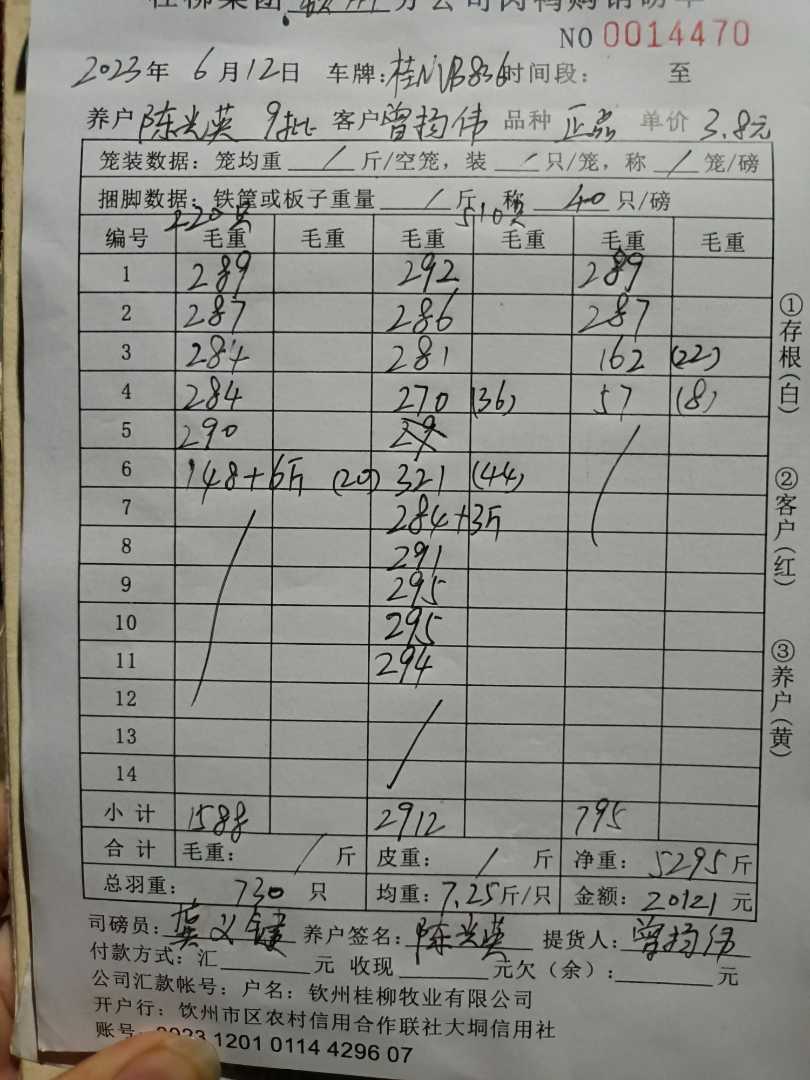 桂柳集团 钦州 分公司肉鸭购销磅单
NO 0014470
2023年 6月12日 车牌: 时间段: 至
养户 陈兴英 9批 客户 曾扬伟 品种 正品 单价 3.8元
笼装数据：笼均重 / 斤/空笼，装 / 只/笼，称 / 笼/磅
捆脚数据：铁筐或板子重量 / 斤 称 40 只/磅
220只 510只
编号 毛重 毛重 毛重 毛重 毛重 毛重
1 289 292 289
2 287 286 287
3 284 281 162 (22)
4 284 270 (36) 57 (8)
5 290
6 148+6斤 (20) 321 (44)
7 284+3斤
8 291
9 295
10 295
11 294
12
13
14
小计 1588 2912 795
合计 毛重: / 斤 皮重: / 斤 净重: 5295斤
总羽重: 730 只 均重: 7.25斤/只 金额: 20121元
司磅员: 养户签名: 陈兴英 提货人: 曾扬伟
付款方式：汇 元 收现 元欠（余）: 元
公司汇款帐号：户名：钦州桂柳牧业有限公司
开户行：钦州市区农村信用合作联社大垌信用社
账号: 1201 0114 4296 07
①存根(白)
②客户(红)
③养户(黄)